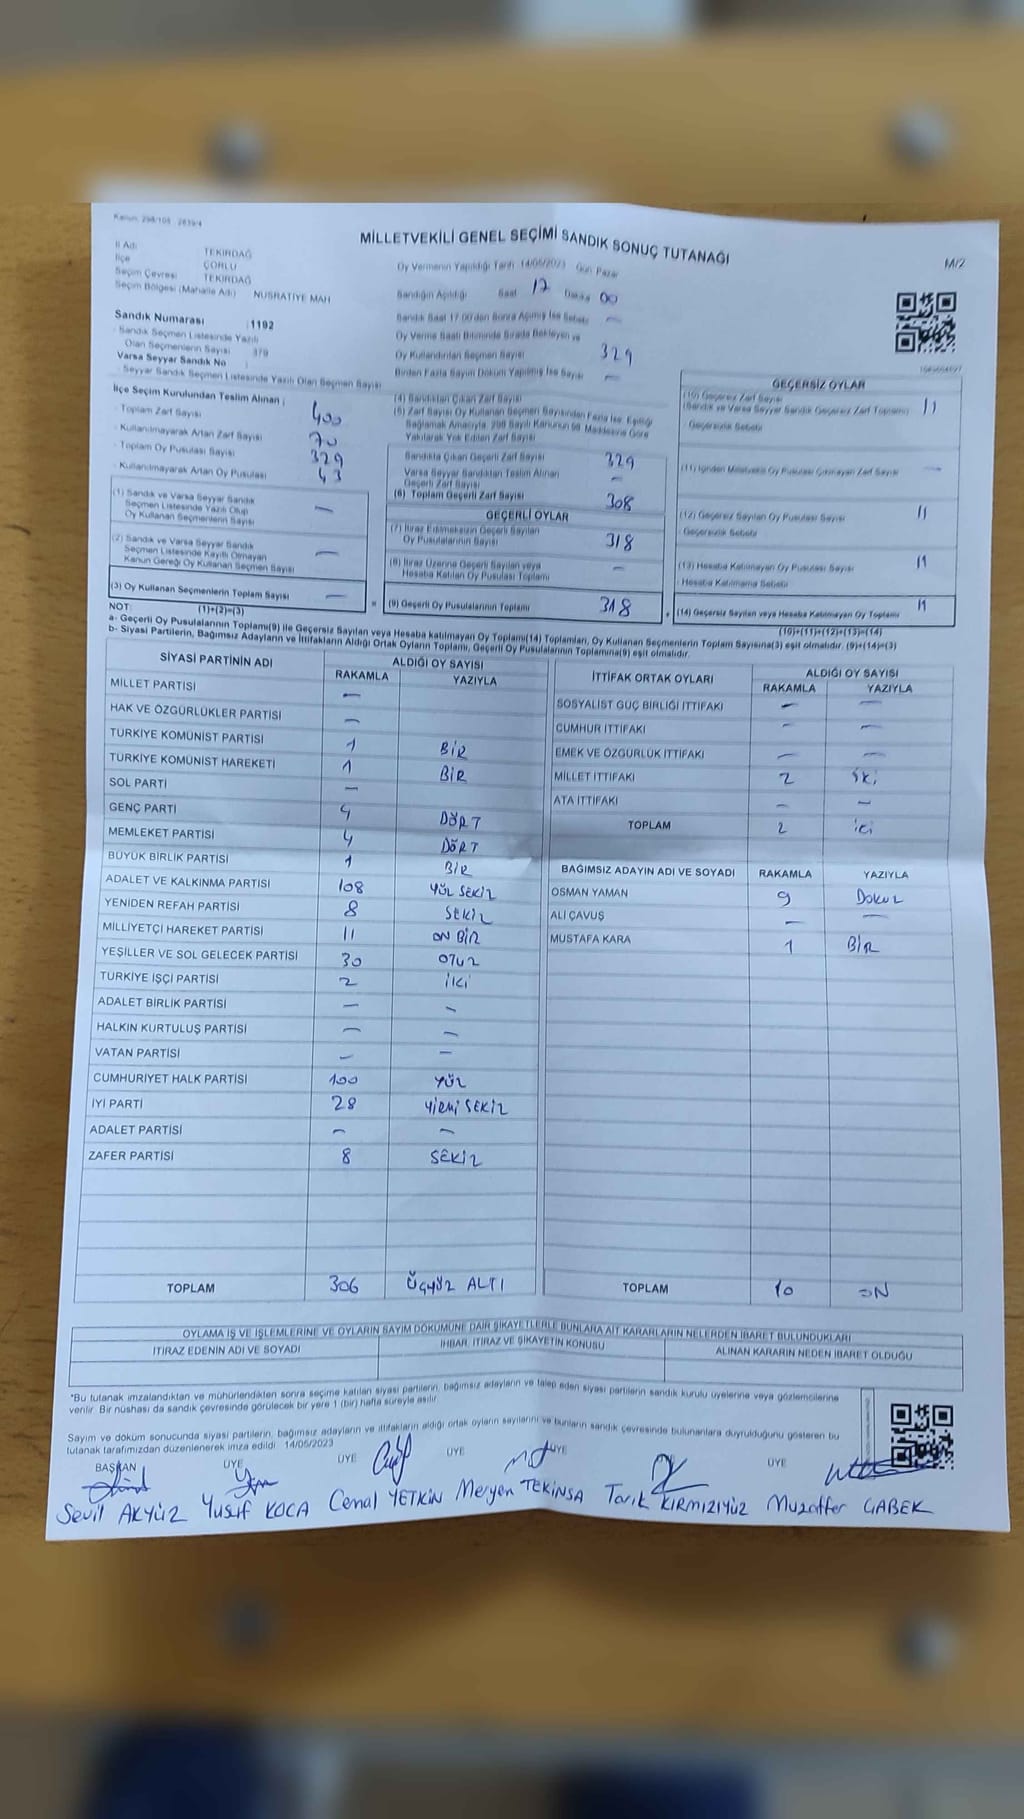 Kanun: 298/105 - 2839/4
MİLLETVEKİLİ GENEL SEÇİMİ SANDIK SONUÇ TUTANAĞI
M/2
İl Adı TEKİRDAĞ
İlçe ÇORLU
Seçim Çevresi TEKİRDAĞ
Seçim Bölgesi (Mahalle Adı) NUSRATİYE MAH
Oy Vermenin Yapıldığı Tarih 14/05/2023 Gün Pazar
Sandığın Açıldığı Saat 17 Dakika 00
Sandık Saat 17:00'den Sonra Açılmış İse Sebebi —
Oy Verme Saati Bitiminde Sırada Bekleyen ve
Oy Kullandırılan Seçmen Sayısı 329
Birden Fazla Sayım Döküm Yapılmış İse Sayısı —
Sandık Numarası : 1192
Sandık Seçmen Listesinde Yazılı
Olan Seçmenlerin Sayısı 379
Varsa Seyyar Sandık No :
Seyyar Sandık Seçmen Listesinde Yazılı Olan Seçmen Sayısı
İlçe Seçim Kurulundan Teslim Alınan ;
Toplam Zarf Sayısı 400
Kullanılmayarak Artan Zarf Sayısı 70
Toplam Oy Pusulası Sayısı 329
Kullanılmayarak Artan Oy Pusulası 43
(1) Sandık ve Varsa Seyyar Sandık
Seçmen Listesinde Yazılı Olup
Oy Kullanan Seçmenlerin Sayısı —
(2) Sandık ve Varsa Seyyar Sandık
Seçmen Listesinde Kayıtlı Olmayan
Kanun Gereği Oy Kullanan Seçmen Sayısı —
(3) Oy Kullanan Seçmenlerin Toplam Sayısı —
(1)+(2)=(3)
(4) Sandıktan Çıkan Zarf Sayısı
(5) Zarf Sayısı Oy Kullanan Seçmen Sayısından Fazla İse, Eşitliği
Sağlamak Amacıyla, 298 Sayılı Kanunun 98. Maddesine Göre
Yakılarak Yok Edilen Zarf Sayısı
Sandıkta Çıkan Geçerli Zarf Sayısı 329
Varsa Seyyar Sandıktan Teslim Alınan
Geçerli Zarf Sayısı —
(6) Toplam Geçerli Zarf Sayısı 308
GEÇERLİ OYLAR
(7) İtiraz Edilmeksizin Geçerli Sayılan
Oy Pusulalarının Sayısı 318
(8) İtiraz Üzerine Geçerli Sayılan veya
Hesaba Katılan Oy Pusulası Toplamı —
(9) Geçerli Oy Pusulalarının Toplamı 318
GEÇERSİZ OYLAR
(10) Geçersiz Zarf Sayısı 11
(Sandık ve Varsa Seyyar Sandık Geçersiz Zarf Toplamı)
Geçersizlik Sebebi
(11) İçinden Milletvekili Oy Pusulası Çıkmayan Zarf Sayısı —
(12) Geçersiz Sayılan Oy Pusulası Sayısı 11
Geçersizlik Sebebi
(13) Hesaba Katılmayan Oy Pusulası Sayısı 11
Hesaba Katılmama Sebebi
(14) Geçersiz Sayılan veya Hesaba Katılmayan Oy Toplamı 11
(10)+(11)+(12)+(13)=(14)
NOT:
a- Geçerli Oy Pusulalarının Toplamı(9) ile Geçersiz Sayılan veya Hesaba katılmayan Oy Toplamı(14) Toplamları, Oy Kullanan Seçmenlerin Toplam Sayısına(3) eşit olmalıdır. (9)+(14)=(3)
b- Siyasi Partilerin, Bağımsız Adayların ve İttifakların Aldığı Ortak Oyların Toplamı, Geçerli Oy Pusulalarının Toplamına(9) eşit olmalıdır.
SİYASİ PARTİNİN ADI ALDIĞI OY SAYISI
RAKAMLA YAZIYLA
MİLLET PARTİSİ —
HAK VE ÖZGÜRLÜKLER PARTİSİ —
TÜRKİYE KOMÜNİST PARTİSİ 1 BİR
TÜRKİYE KOMÜNİST HAREKETİ 1 BİR
SOL PARTİ —
GENÇ PARTİ 4 DÖRT
MEMLEKET PARTİSİ 4 DÖRT
BÜYÜK BİRLİK PARTİSİ 1 BİR
ADALET VE KALKINMA PARTİSİ 108 YÜZ SEKİZ
YENİDEN REFAH PARTİSİ 8 SEKİZ
MİLLİYETÇİ HAREKET PARTİSİ 11 ON BİR
YEŞİLLER VE SOL GELECEK PARTİSİ 30 OTUZ
TÜRKİYE İŞÇİ PARTİSİ 2 İKİ
ADALET BİRLİK PARTİSİ — —
HALKIN KURTULUŞ PARTİSİ — —
VATAN PARTİSİ — —
CUMHURİYET HALK PARTİSİ 100 YÜZ
İYİ PARTİ 28 YİRMİ SEKİZ
ADALET PARTİSİ — —
ZAFER PARTİSİ 8 SEKİZ
TOPLAM 306 ÜÇYÜZ ALTI
İTTİFAK ORTAK OYLARI ALDIĞI OY SAYISI
RAKAMLA YAZIYLA
SOSYALİST GÜÇ BİRLİĞİ İTTİFAKI — —
CUMHUR İTTİFAKI — —
EMEK VE ÖZGÜRLÜK İTTİFAKI — —
MİLLET İTTİFAKI 2 İki
ATA İTTİFAKI — —
TOPLAM 2 iki
BAĞIMSIZ ADAYIN ADI VE SOYADI RAKAMLA YAZIYLA
OSMAN YAMAN 9 Dokuz
ALİ ÇAVUŞ — —
MUSTAFA KARA 1 BİR
TOPLAM 10 ON
OYLAMA İŞ VE İŞLEMLERİNE VE OYLARIN SAYIM DÖKÜMÜNE DAİR ŞİKAYETLERLE BUNLARA AİT KARARLARIN NELERDEN İBARET BULUNDUKLARI
İTİRAZ EDENİN ADI VE SOYADI İHBAR, İTİRAZ VE ŞİKAYETİN KONUSU ALINAN KARARIN NEDEN İBARET OLDUĞU
*Bu tutanak imzalandıktan ve mühürlendikten sonra seçime katılan siyasi partilerin, bağımsız adayların ve talep eden siyasi partilerin sandık kurulu üyelerine veya gözlemcilerine
verilir. Bir nüshası da sandık çevresinde görülecek bir yere 1 (bir) hafta süreyle asılır.
Sayım ve döküm sonucunda siyasi partilerin, bağımsız adayların ve ittifakların aldığı ortak oyların sayılarını ve bunların sandık çevresinde bulunanlara duyrulduğunu gösteren bu
tutanak tarafımızdan düzenlenerek imza edildi. 14/05/2023
BAŞKAN ÜYE ÜYE ÜYE ÜYE ÜYE
Sevil AKYÜZ Yusuf KOCA Cemal YETKİN Meryem TEKİNSA Tarık KIRMIZIYÜZ Muzaffer GABEK